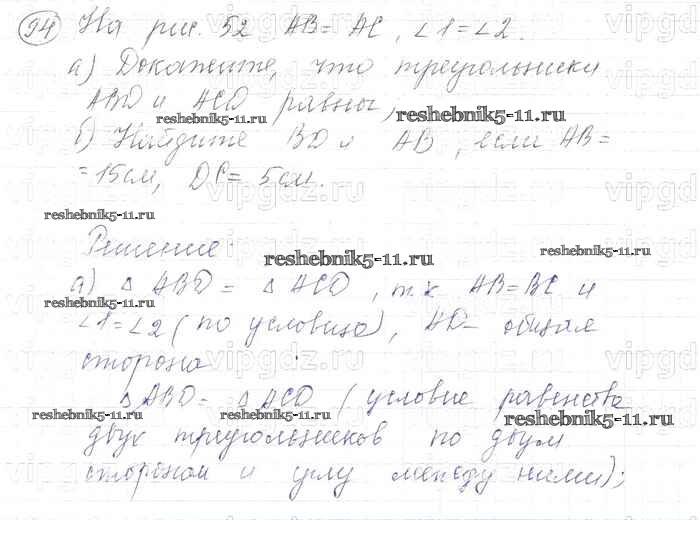 94 На рис. 52 AB = AC, ∠1=∠2.
а) Докажите, что треугольники
ABD и ACD равны,
б) Найдите BD и AB, если AB=
=15см, DC= 5см.
Решение:
а) △ ABD = △ ACD, т.к AB=BC и
∠1=∠2 (по условию), AD- общая
сторона
△ABD= △ACD (условие равенства
двух треугольников по двум
сторонам и углу между ними);
reshebnik5-11.ru
reshebnik5-11.ru
reshebnik5-11.ru
reshebnik5-11.ru
reshebnik5-11.ru
reshebnik5-11.ru
reshebnik5-11.ru
reshebnik5-11.ru
reshebnik5-11.ru
vipgdz.ru